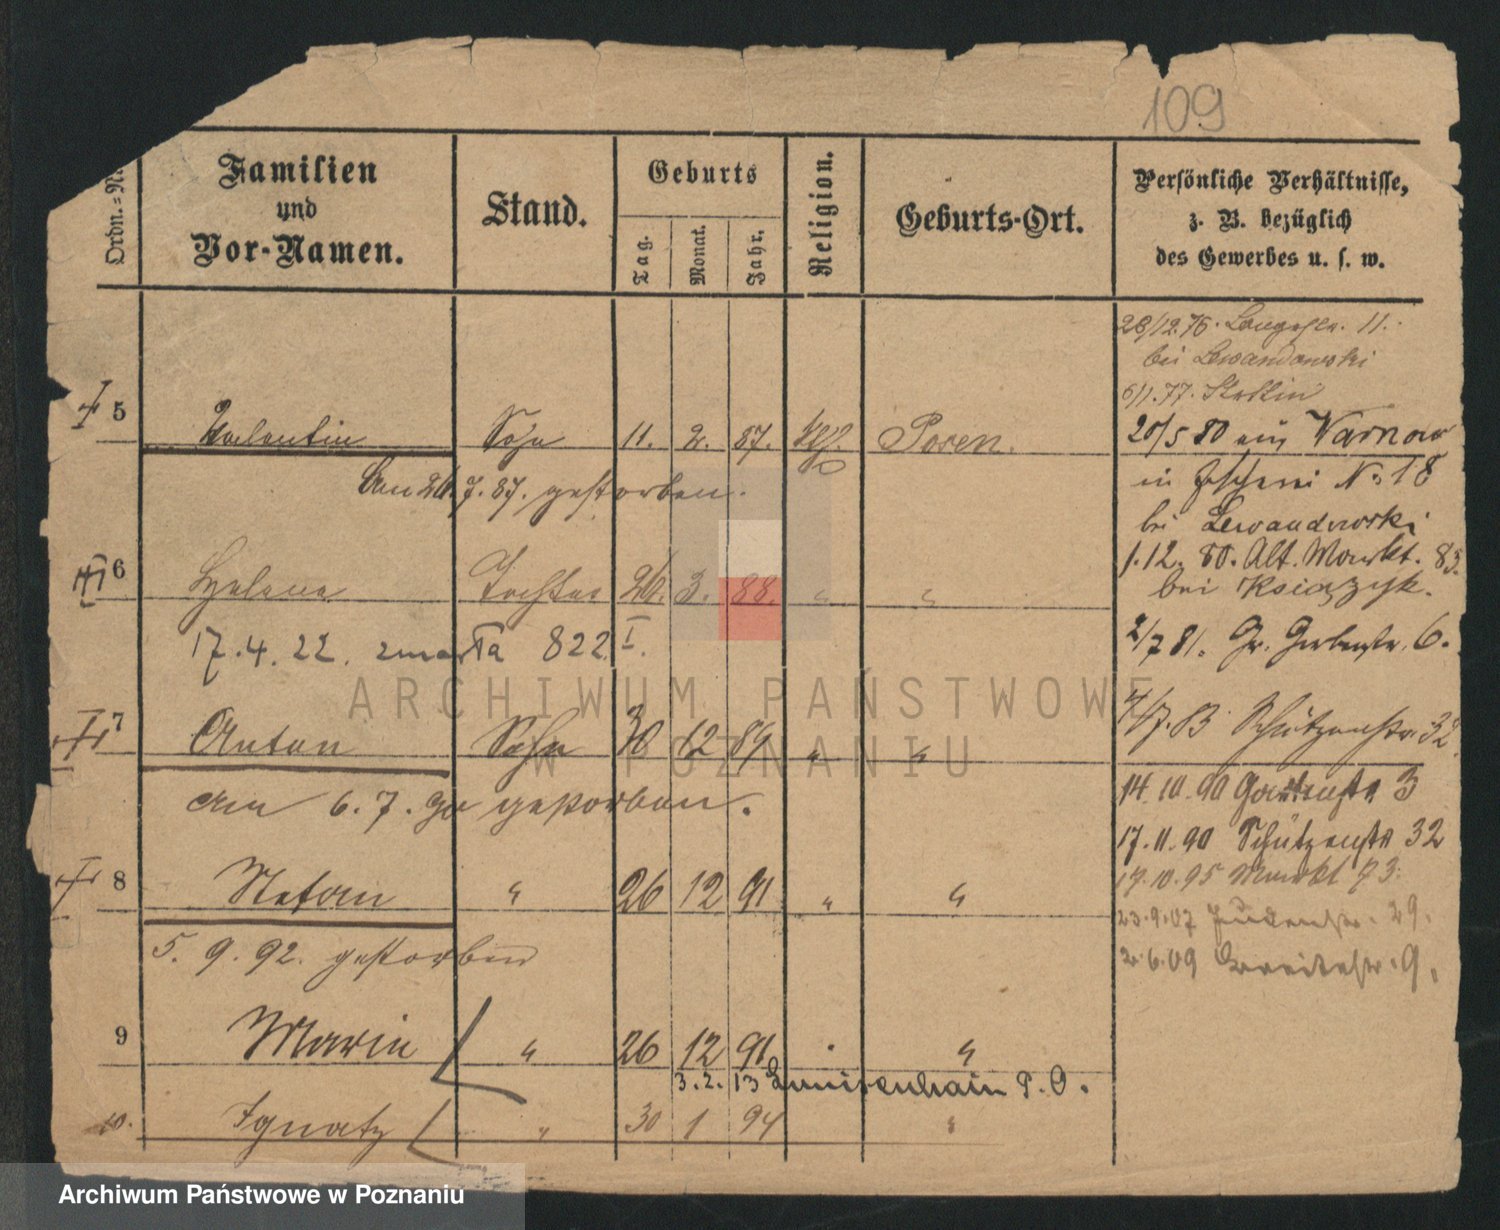 109
Ordn.=N
Familien
und
Vor-Namen.
Stand.
Geburts
Tag.
Monat.
Jahr.
Religion.
Geburts-Ort.
Persönliche Verhältnisse,
z. B. bezüglich
des Gewerbes u. s. w.
28/12.76. 11.
bei Lewandowski
6/1.77. Stettin
5 Valentin Sohn 11. 2. 87. Posen.
20/5 80 aus Warnow
Am 26.7.87. gestorben.
in N. 18
bei Lewandowski
6 Helene Tochter 26. 3. 88. " "
1.12.80. Alt. Markt. 83.
bei Książzyk.
17.4.22. zmarła 822 I.
2/7 81. Gr. Gerberstr. 6.
7 Anton Sohn 30 12 89 " "
4/7.83 Schützenstr. 32.
am 6.7.90 gestorben.
14.10.90 Gartenstr 3
17.11.90 Schützenstr 32
8 Stefan " 26 12 91 " "
17.10.95 Markt 73.
23.9.07 Judenstr. 29.
5.9.92. gestorben
2.6.09 Breitestr. 9.
9 Marie " 26 12 91 "
3.2.13 Luisenhain P.O.
10. Ignatz " 30 1 94 "
ARCHIWUM PAŃSTWOWE
W POZNANIU
Archiwum Państwowe w Poznaniu